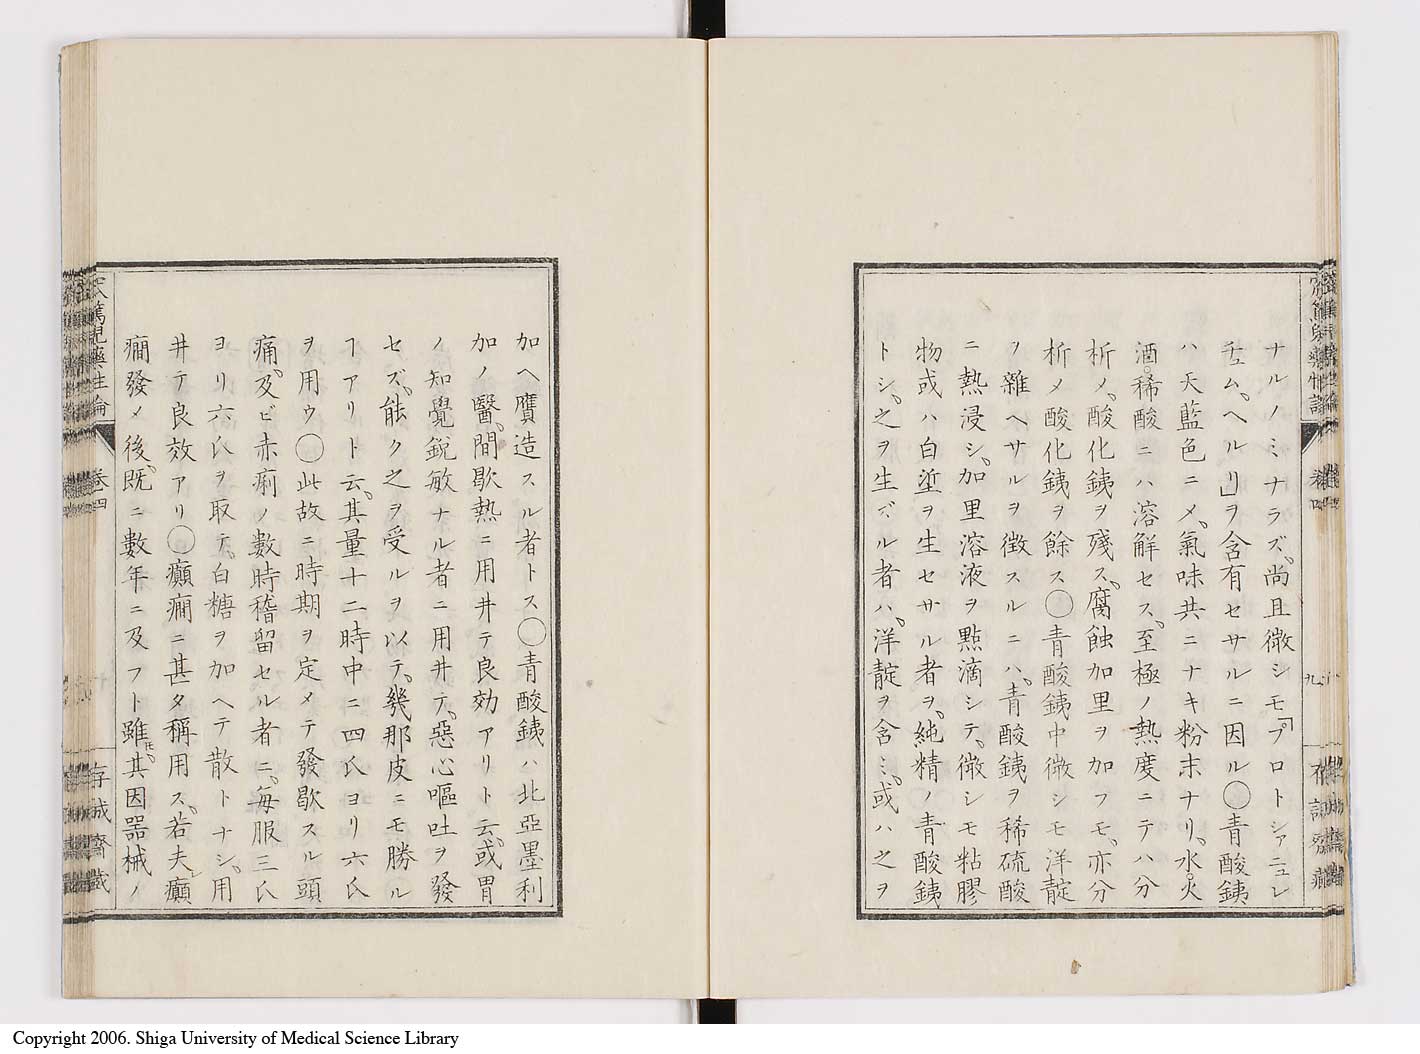 ナルノミナラズ、尚且微シモ「プロトシァニュレ
チュム、ヘルリ」ヲ含有セサルニ因ル◯青酸銕
ハ天藍色ニメ、氣味共ニナキ粉末ナリ、水火
酒。稀酸ニハ溶解セス、至極ノ熱度ニテハ分
析メ、酸化銕ヲ殘ス、腐蝕加里ヲ加フモ、亦分
析メ酸化銕ヲ餘ス◯青酸銕中微シモ洋靛
ヲ雜ヘサルヲ徴スルニハ、青酸銕ヲ稀硫酸
ニ熱浸シ、加里溶液ヲ點滴シテ、微シモ粘膠
物或ハ白垽ヲ生セサル者ヲ、純精ノ青酸銕
トシ、之ヲ生ズル者ハ、洋靛ヲ含ミ、或ハ之ヲ
加ヘ贋造スル者トス◯青酸銕ハ北亞墨利
加ノ醫、間歇熱ニ用井テ良効アリト云、或胃
ノ知覺銳敏ナル者ニ用井テ、惡心嘔吐ヲ發
セズ、能ク之ヲ受ルヲ以テ、幾那皮ニモ勝ル
ヿアリト云、其量十二時中ニ四氏ヨリ六氏
ヲ用ウ◯此故ニ時期ヲ定メテ發歇スル頭
痛、及ビ赤痢ノ數時稽留セル者ニ、毎服三氏
ヨリ六氏ヲ取テ、白糖ヲ加ヘテ散トナシ、用
井テ良效アリ◯癲癇ニ甚タ稱用ス、若夫癲
癇發メ後、既ニ數年ニ及フト雖𪜈、其因器械ノ
卷四
存誠齋藏
Copyright 2006. Shiga University of Medical Science Library